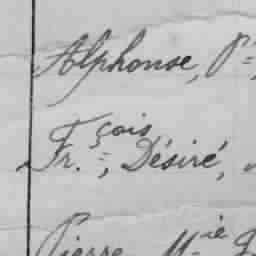 Alphonse, P=,
Fr.çois=, Désiré,
Pierre M.ie